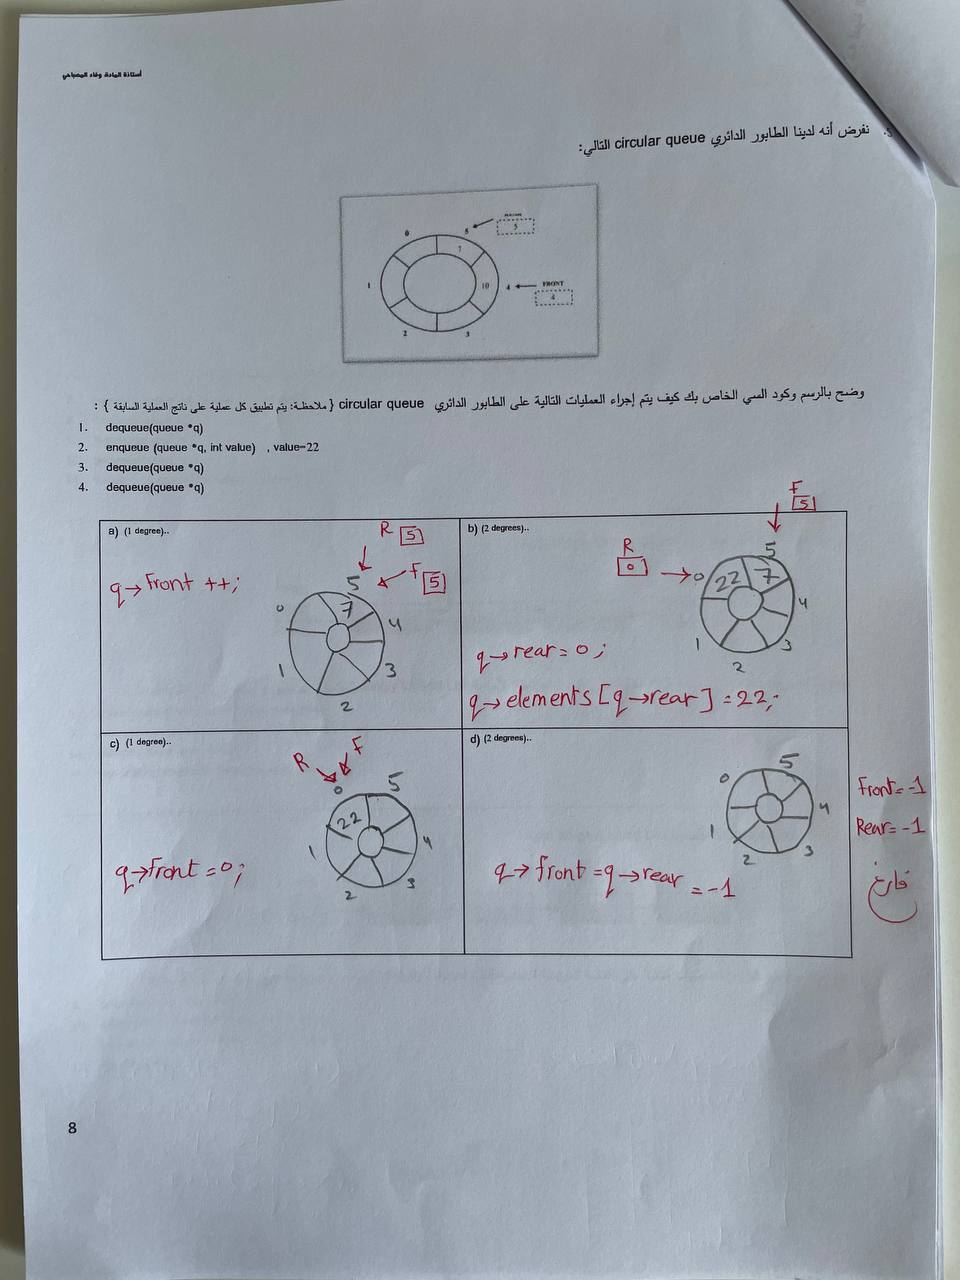 أستاذة المادة وفاء المصباحي
5. نفرض أنه لدينا الطابور الدائري circular queue التالي:
0
5
5
7
1
10
4
FRONT
4
2
3
وضح بالرسم وكود السي الخاص بك كيف يتم إجراء العمليات التالية على الطابور الدائري circular queue { ملاحظة: يتم تطبيق كل عملية على ناتج العملية السابقة } :
1. dequeue(queue *q)
2. enqueue (queue *q, int value) , value=22
3. dequeue(queue *q)
4. dequeue(queue *q)
a) (1 degree)..
R 5
F 5
q→Front ++;
5
7
0
4
1
3
2
b) (2 degrees)..
F
5
R
0
5
0
22 7
4
1
3
2
q→rear = 0;
q→elements[q→rear] = 22;
c) (1 degree)..
R F
0
5
22
1
4
2
3
q→front = 0;
d) (2 degrees)..
5
0
4
1
2
3
q→front = q→rear = -1
Front = -1
Rear = -1
فارغ
8